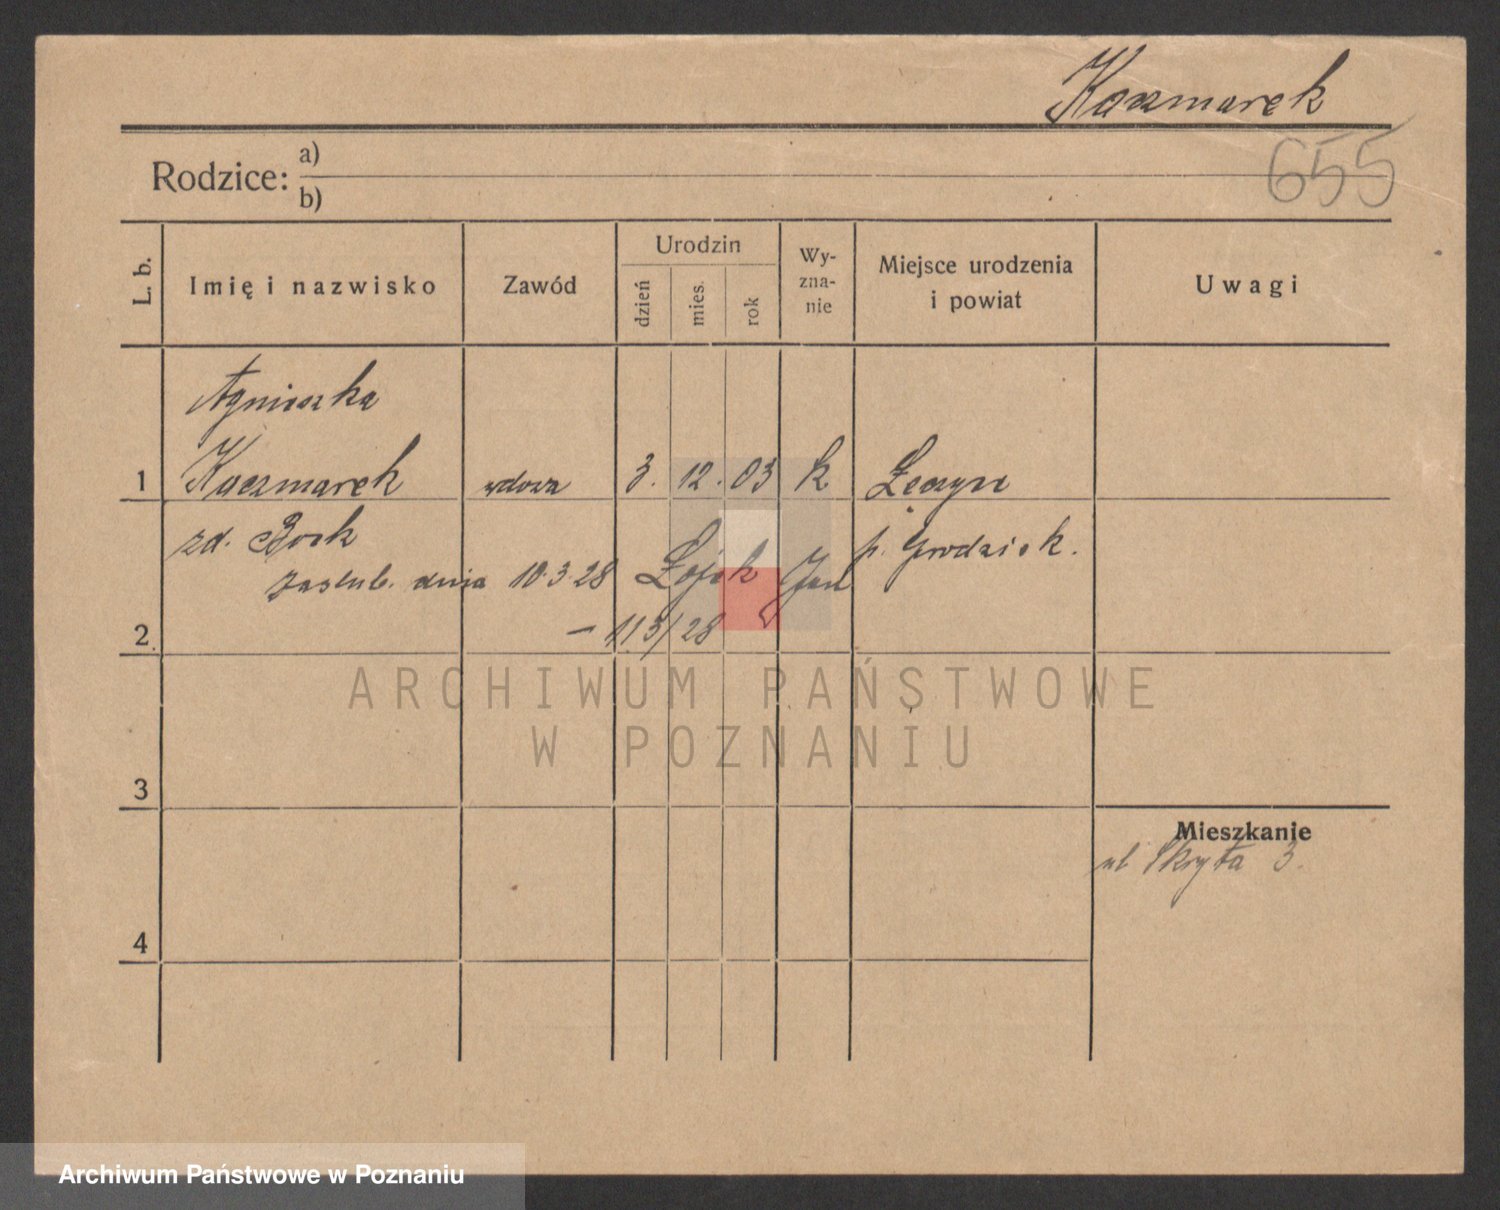 Kaczmarek
655
Rodzice: a)
b)
L. b.
Imię i nazwisko
Zawód
Urodzin
dzień
mies.
rok
Wy-
zna-
nie
Miejsce urodzenia
i powiat
Uwagi
Agnieszka
1 Kaczmarek wdowa 3. 12. 03 k Łęczyce
zd. Bork p. Grodzisk.
zaślub. dnia 10.3.28 Łojek Jan
2 – 113/28
3
4
Mieszkanie
ul Skryta 3.
ARCHIWUM PAŃSTWOWE
W POZNANIU
Archiwum Państwowe w Poznaniu